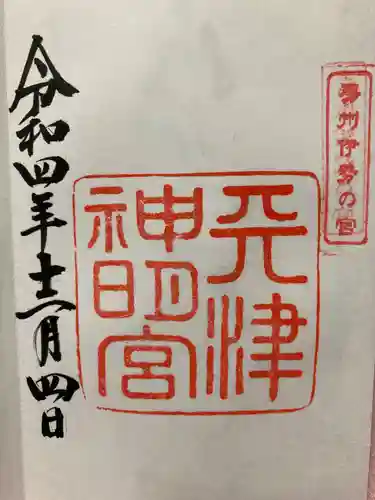 房州伊勢の宮
天津
神明宮
令和四年十二月四日